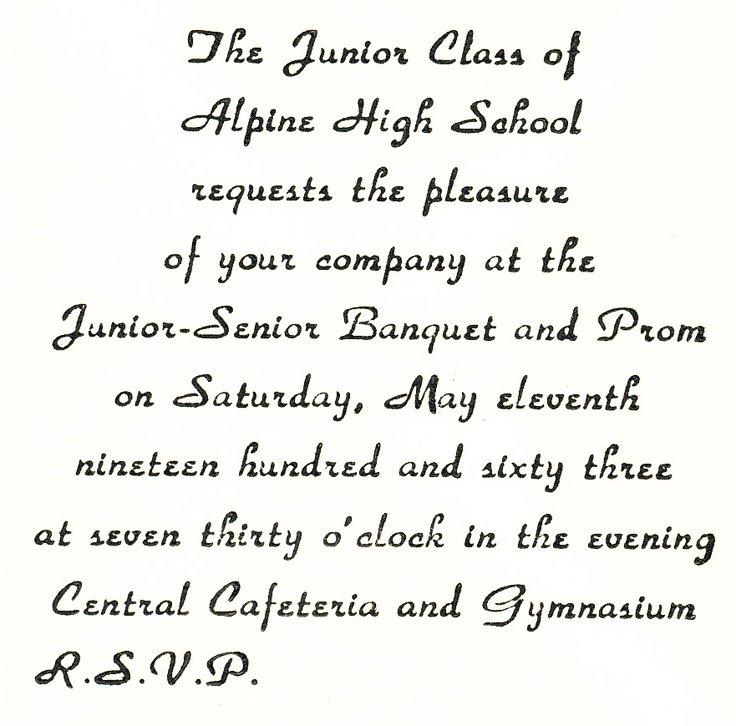 The Junior Class of
Alpine High School
requests the pleasure
of your company at the
Junior-Senior Banquet and Prom
on Saturday, May eleventh
nineteen hundred and sixty three
at seven thirty o'clock in the evening
Central Cafeteria and Gymnasium
R.S.V.P.